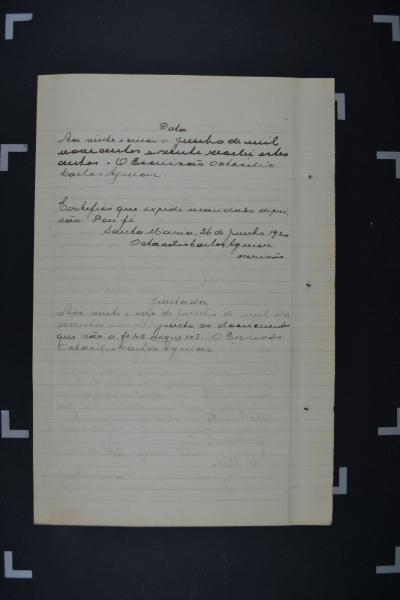 Data
Aos vinte e cinco de Junho de mil
novecentos e vinte recebi estes
autos. O Escrivão Octacilio
Carlos Aguiar.
Certifico que expedi mandado de pri-
são. Dou fé
Santa Maria, 26 de Junho 192
Octacilio Carlos Aguiar
escrivão
Juntada
Aos vinte e seis de Junho de mil no-
vecentos e vinte junto os documentos
que vão a fs 102 segue 103. O Escrivão
Octacilio Carlos Aguiar